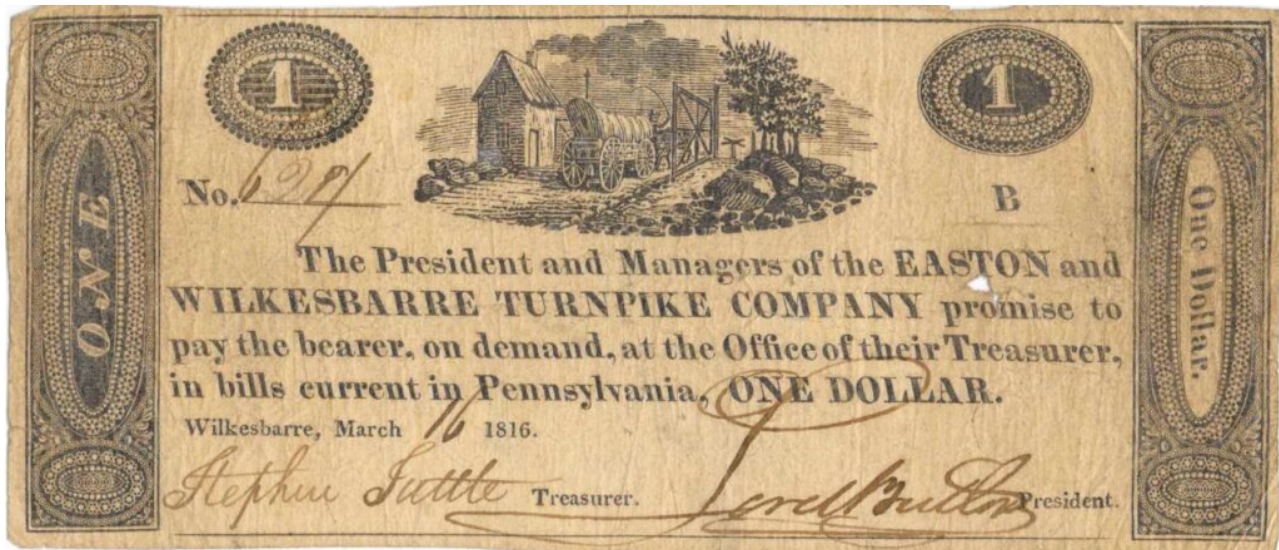 1 1
No. B
ONE
The President and Managers of the EASTON and
WILKESBARRE TURNPIKE COMPANY promise to
pay the bearer, on demand, at the Office of their Treasurer,
in bills current in Pennsylvania, ONE DOLLAR.
Wilkesbarre, March 16 1816.
Stephen Tuttle Treasurer. President.
One Dollar.